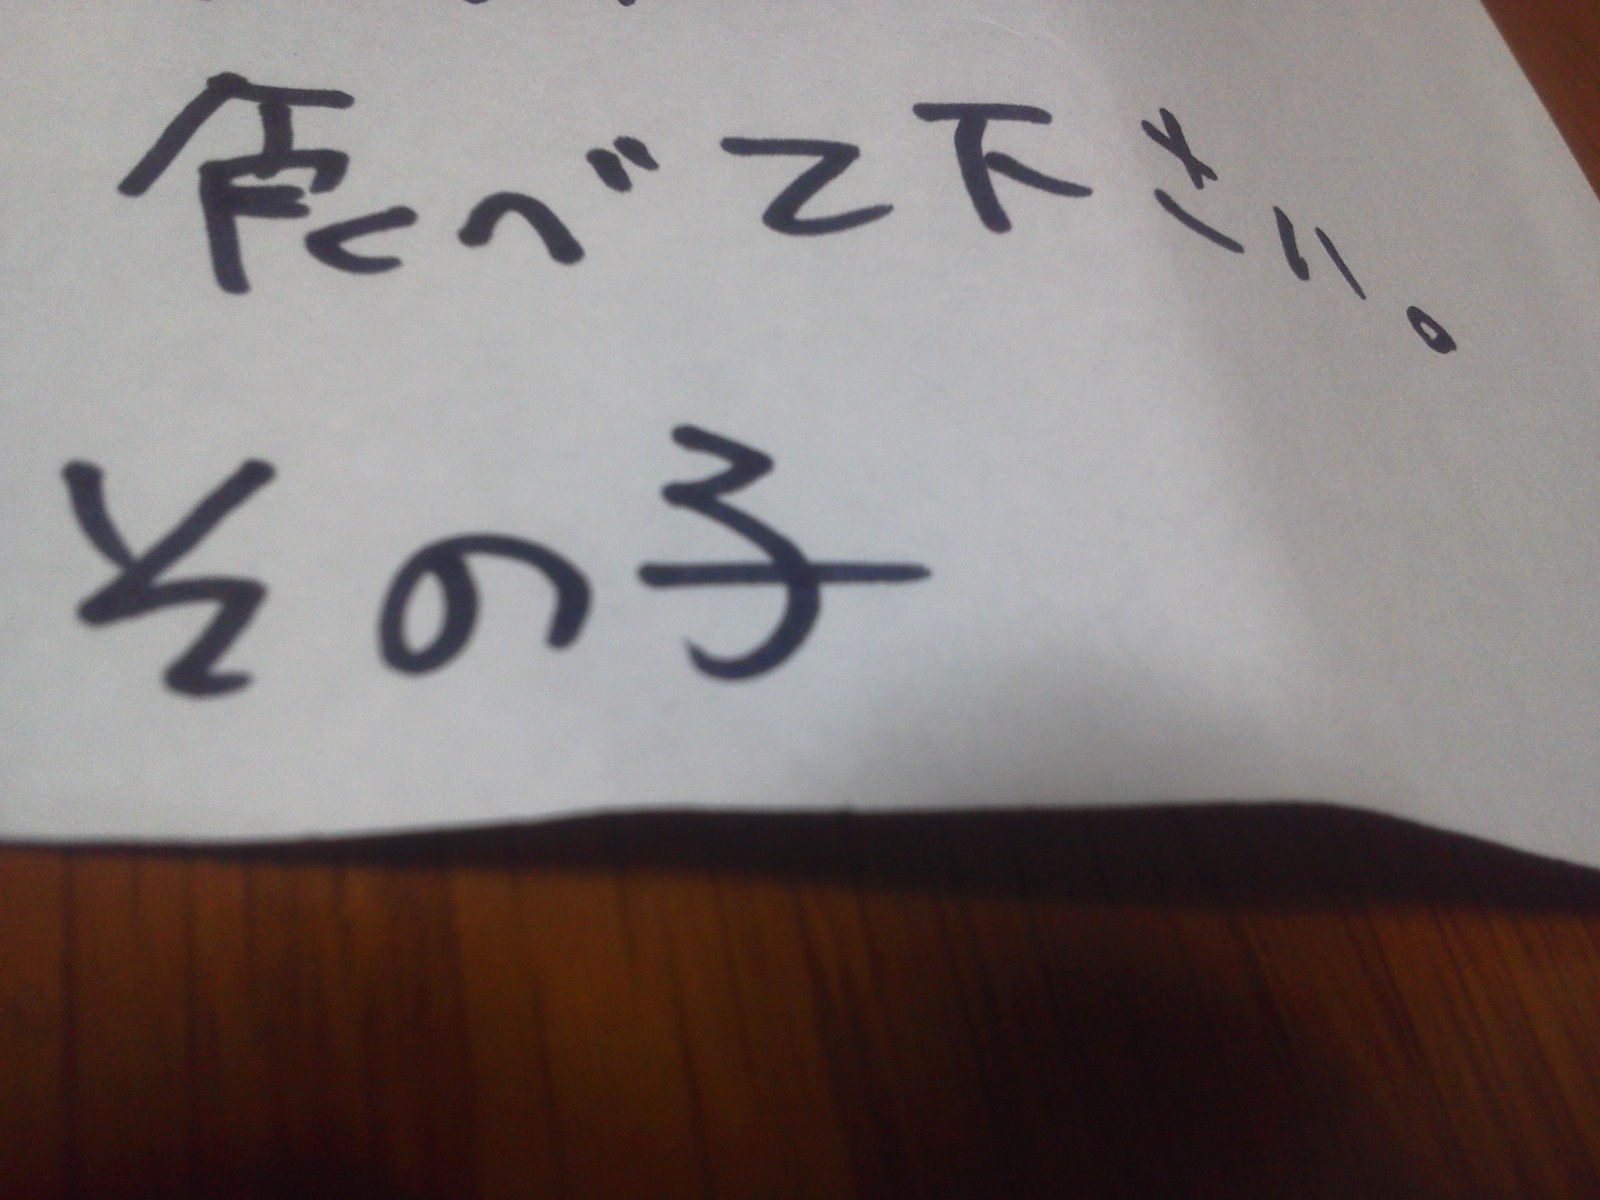 食べて下さい。
その子